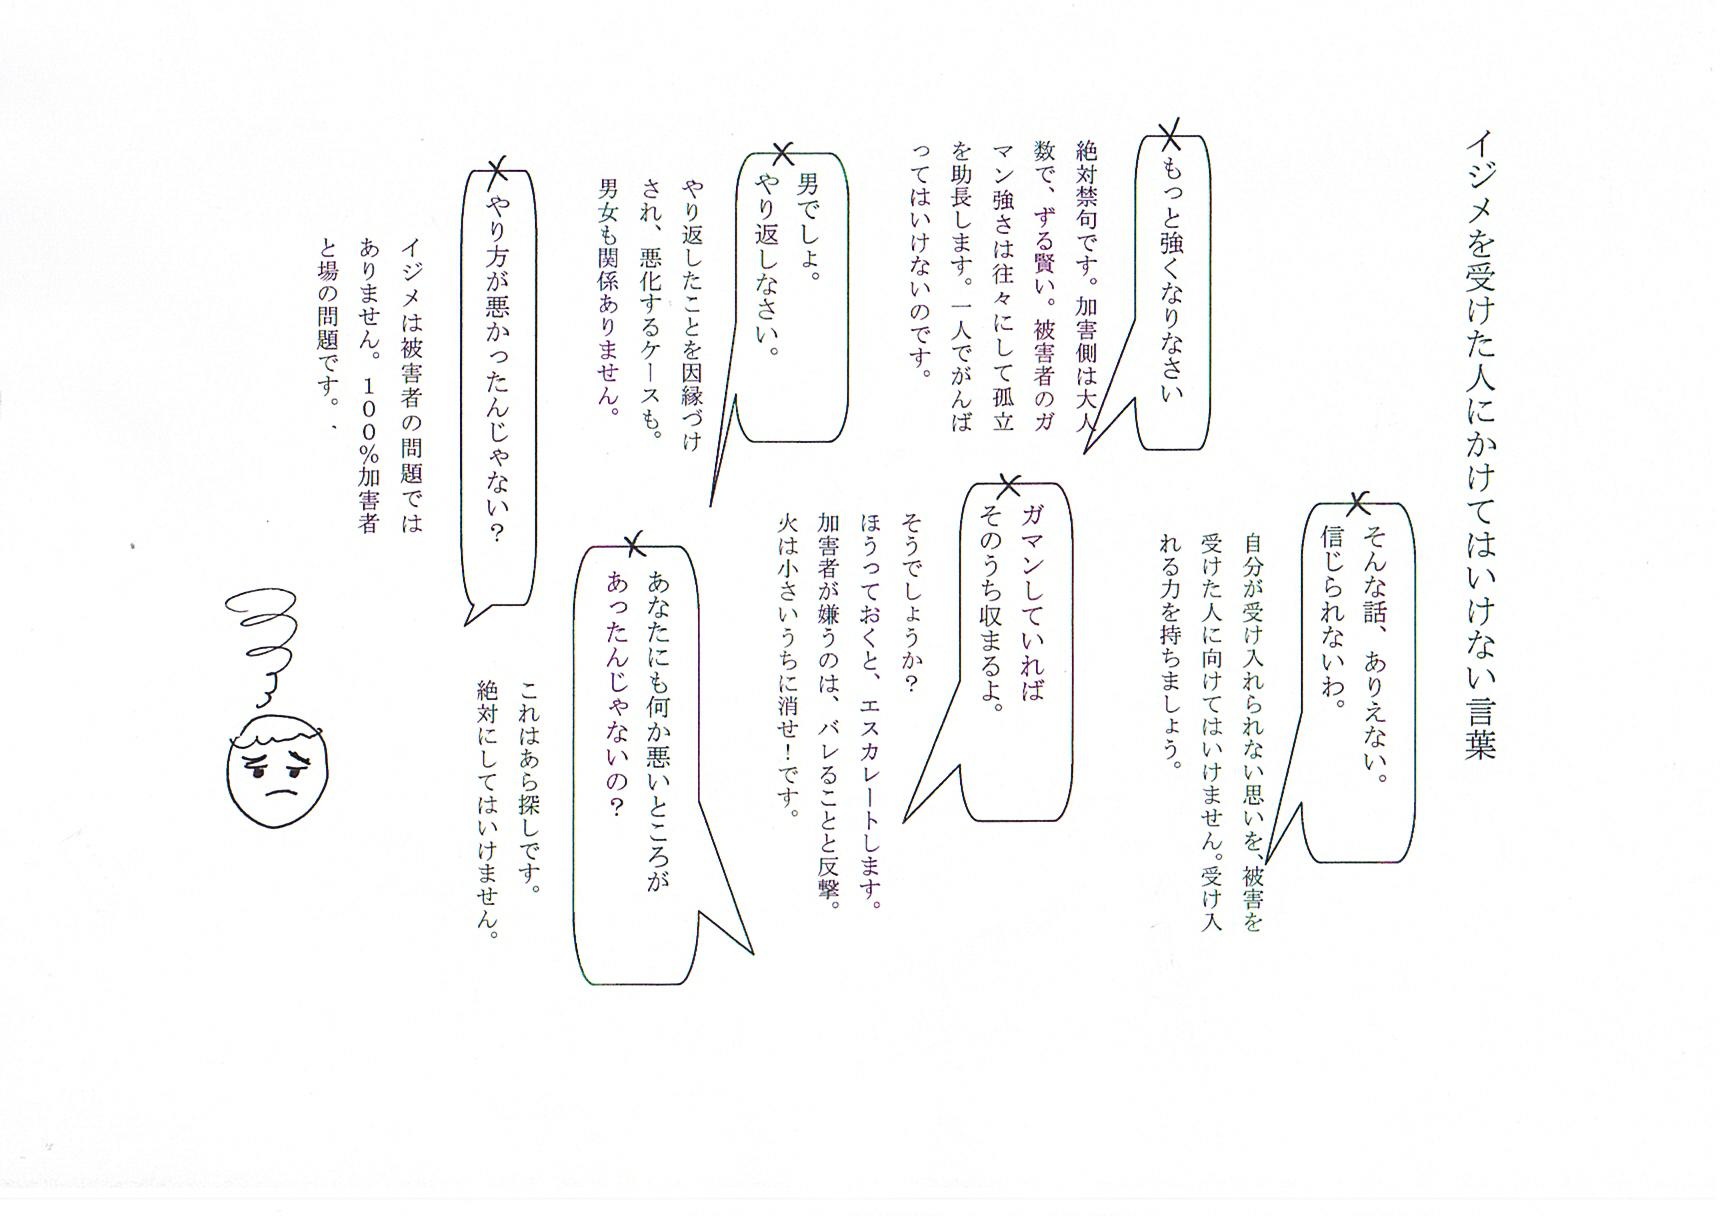 イジメを受けた人にかけてはいけない言葉
そんな話、ありえない。
信じられないわ。
自分が受け入れられない思いを、被害を
受けた人に向けてはいけません。受け入
れる力を持ちましょう。
もっと強くなりなさい
絶対禁句です。加害側は大人
数で、ずる賢い。被害者のガ
マン強さは往々にして孤立
を助長します。一人でがんば
ってはいけないのです。
ガマンしていれば
そのうち収まるよ。
そうでしょうか?
ほうっておくと、エスカレートします。
加害者が嫌うのは、バレることと反撃。
火は小さいうちに消せ!です。
男でしょ。
やり返しなさい。
やり返したことを因縁づけ
され、悪化するケースも。
男女も関係ありません。
あなたにも何か悪いところが
あったんじゃないの?
これはあら探しです。
絶対にしてはいけません。
やり方が悪かったんじゃない?
イジメは被害者の問題では
ありません。100%加害者
と場の問題です。